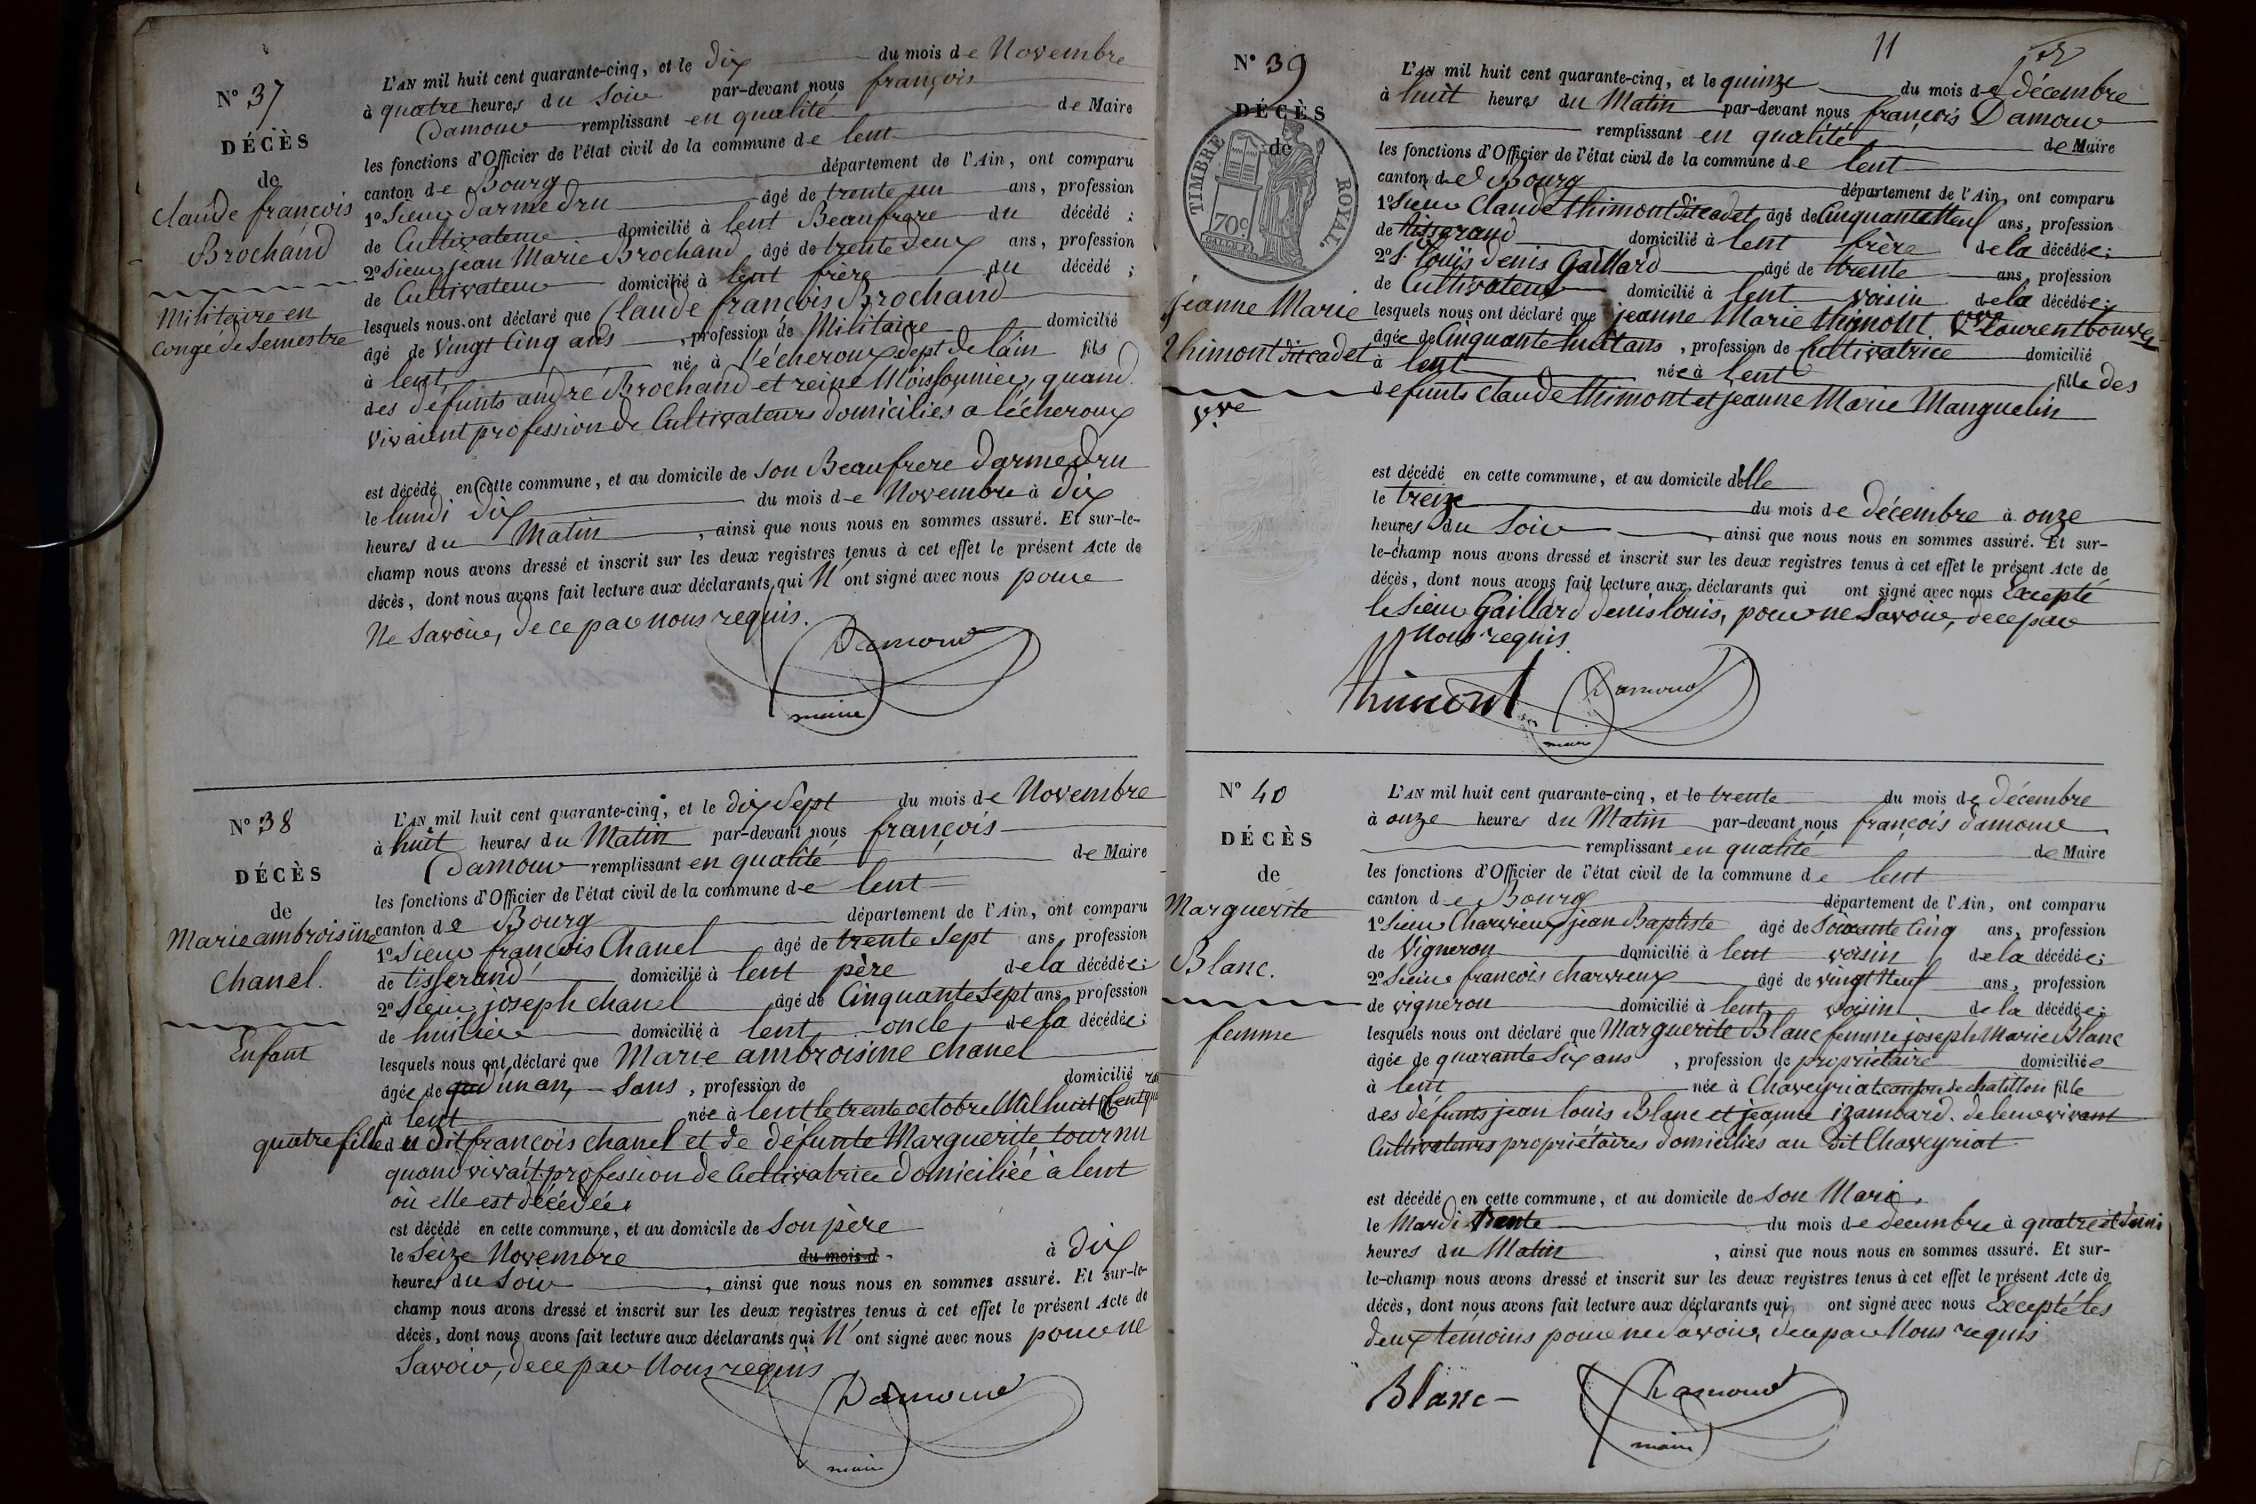 N° 37
DÉCÈS
de
Claude françois
Brochand
Militaire en
Congé de Semestre
L'AN mil huit cent quarante-cinq, et le dix du mois de Novembre
à quatre heures du Soir par-devant nous françois
Damour remplissant en qualité de Maire
les fonctions d'Officier de l'état civil de la commune de lent
canton de Bourg département de l'Ain, ont comparu
1° Sieur darmedru âgé de trente un ans, profession
de Cultivateur domicilié à lent Beaufrère du décédé ;
2° Sieur jean Marie Brochand âgé de trente deux ans, profession
de Cultivateur domicilié à lent frère du décédé ;
lesquels nous ont déclaré que Claude françois Brochand
âgé de Vingt Cinq ans , profession de Militaire domicilié
à lent né à l'écheroux dept de l'ain fils
des défunts andré Brochand et reine Moissonnier, quand
vivaient profession de Cultivateurs domiciliés a l'écheroux
est décédé en cette commune, et au domicile de son Beaufrere darmedru
le lundi dix du mois de Novembre à dix
heures du Matin , ainsi que nous nous en sommes assuré. Et sur-le-
champ nous avons dressé et inscrit sur les deux registres tenus à cet effet le présent Acte de
décès, dont nous avons fait lecture aux déclarants qui N'ont signé avec nous pour
Ne Savoir, de ce par nous requis.
Damour
maire
N° 38
DÉCÈS
de
Marie ambroisine
Chanel.
Enfant
L'AN mil huit cent quarante-cinq, et le dix Sept du mois de Novembre
à huit heures du Matin par-devant nous françois
Damour remplissant en qualité de Maire
les fonctions d'Officier de l'état civil de la commune de lent
canton de Bourg département de l'Ain, ont comparu
1° Sieur françois Chanel âgé de trente Sept ans, profession
de tisserand domicilié à lent père de la décédée ;
2° Sieur joseph chanel âgé de Cinquante Sept ans, profession
de huilier domicilié à lent oncle de la décédée ;
lesquels nous ont déclaré que Marie ambroisine chanel
âgée de d'un an, Sans , profession de domicilié
à lent née à lent le trente octobre Mil huit Cent qua
quatre fille du dit françois chanel et de défunte Marguerite tournu
quand vivait profession de Cultivatrice domiciliée à lent
où elle est décédée
est décédé en cette commune, et au domicile de Son père
le Seize Novembre du mois d à dix
heures du Soir , ainsi que nous nous en sommes assuré. Et sur-le-
champ nous avons dressé et inscrit sur les deux registres tenus à cet effet le présent Acte de
décès, dont nous avons fait lecture aux déclarants qui N'ont signé avec nous pour ne
Savoir, de ce par Nous requis
Damour
maire
11
N° 39
DÉCÈS
de
TIMBRE ROYAL
70c
jeanne Marie
thimont dit cadet
Vve
L'AN mil huit cent quarante-cinq, et le quinze du mois de décembre
à huit heures du Matin par-devant nous françois Damour
remplissant en qualité de Maire
les fonctions d'Officier de l'état civil de la commune de lent
canton de Bourg département de l'Ain, ont comparu
1° Sieur Claude thimont dit cadet âgé de Cinquante Neuf ans, profession
de tisserand domicilié à lent frère de la décédée ;
2° S. louis denis Gaillard âgé de trente ans, profession
de Cultivateur domicilié à lent voisin de la décédée ;
lesquels nous ont déclaré que jeanne Marie thimont Vve laurent
âgée de Cinquante huit ans , profession de Cultivatrice domicilié
à lent née à lent fille des
defunts claude thimont et jeanne Marie Manguelin
est décédé en cette commune, et au domicile d'elle
le treize du mois de décembre à onze
heures du Soir , ainsi que nous nous en sommes assuré. Et sur-
le-champ nous avons dressé et inscrit sur les deux registres tenus à cet effet le présent Acte de
décès, dont nous avons fait lecture aux déclarants qui ont signé avec nous Excepté
le Sieur Gaillard denis louis, pour ne Savoir, de ce par
Nous requis.
thimont Damour
maire
N° 40
DÉCÈS
de
Marguerite
Blanc.
femme
L'AN mil huit cent quarante-cinq, et le trente du mois de décembre
à onze heures du Matin par-devant nous françois damour
remplissant en qualité de Maire
les fonctions d'Officier de l'état civil de la commune de lent
canton de Bourg département de l'Ain, ont comparu
1° Sieur Charvieux jean Baptiste âgé de Soixante Cinq ans, profession
de Vigneron domicilié à lent voisin de la décédée ;
2° Sieur francois charvieux âgé de vingt Neuf ans, profession
de vigneron domicilié à lent voisin de la décédée ;
lesquels nous ont déclaré que Marguerite Blanc femme joseph Marie Blanc
âgée de quarante Six ans , profession de propriétaire domiciliée
à lent née à Chaveyriat canton de chatillon fille
des défunts jean louis Blanc et jeanne izambard. de leur vivant
Cultivateurs propriétaires domiciliés au dit Chaveyriat
est décédé en cette commune, et au domicile de son Mari,
le Mardi trente du mois de decembre à quatre et demi
heures du Matin , ainsi que nous nous en sommes assuré. Et sur-
le-champ nous avons dressé et inscrit sur les deux registres tenus à cet effet le présent Acte de
décès, dont nous avons fait lecture aux déclarants qui ont signé avec nous Excepté les
deux témoins pour ne Savoir, de ce par Nous requis
Blanc Damour
maire